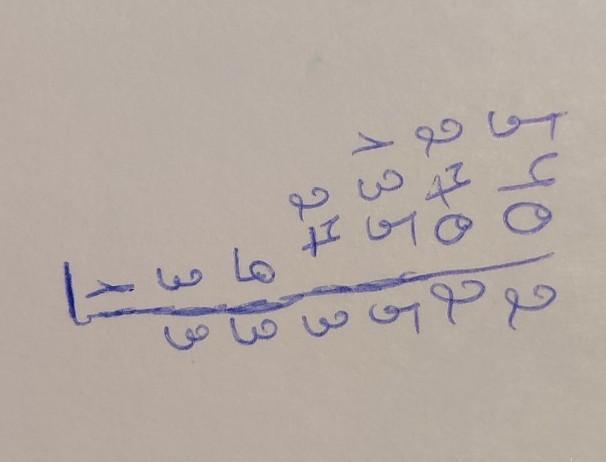 540 | 2
270 | 2
135 | 5
27 | 3
9 | 3
3 | 3
1 |